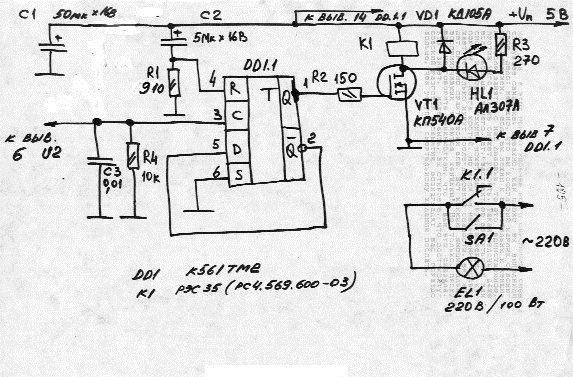 C1 50мк×16В C2 к выв. 14 DD1.1 VD1 КД105А +Uп 5В
5мк×16В
K1
R3
270
R1
910
DD1.1
4 R T Q 1 R2 150
HL1
АЛ307А
VT1
КП540А
к выв.
6 U2
3 C
к выв 7
DD1.1
5 D Q 2
C3
0,01
R4
10к
6 S
K1.1
SA1
~220В
DD1 К561ТМ2
K1 РЭС35 (РС4.569.600-03)
EL1
220В/100Вт